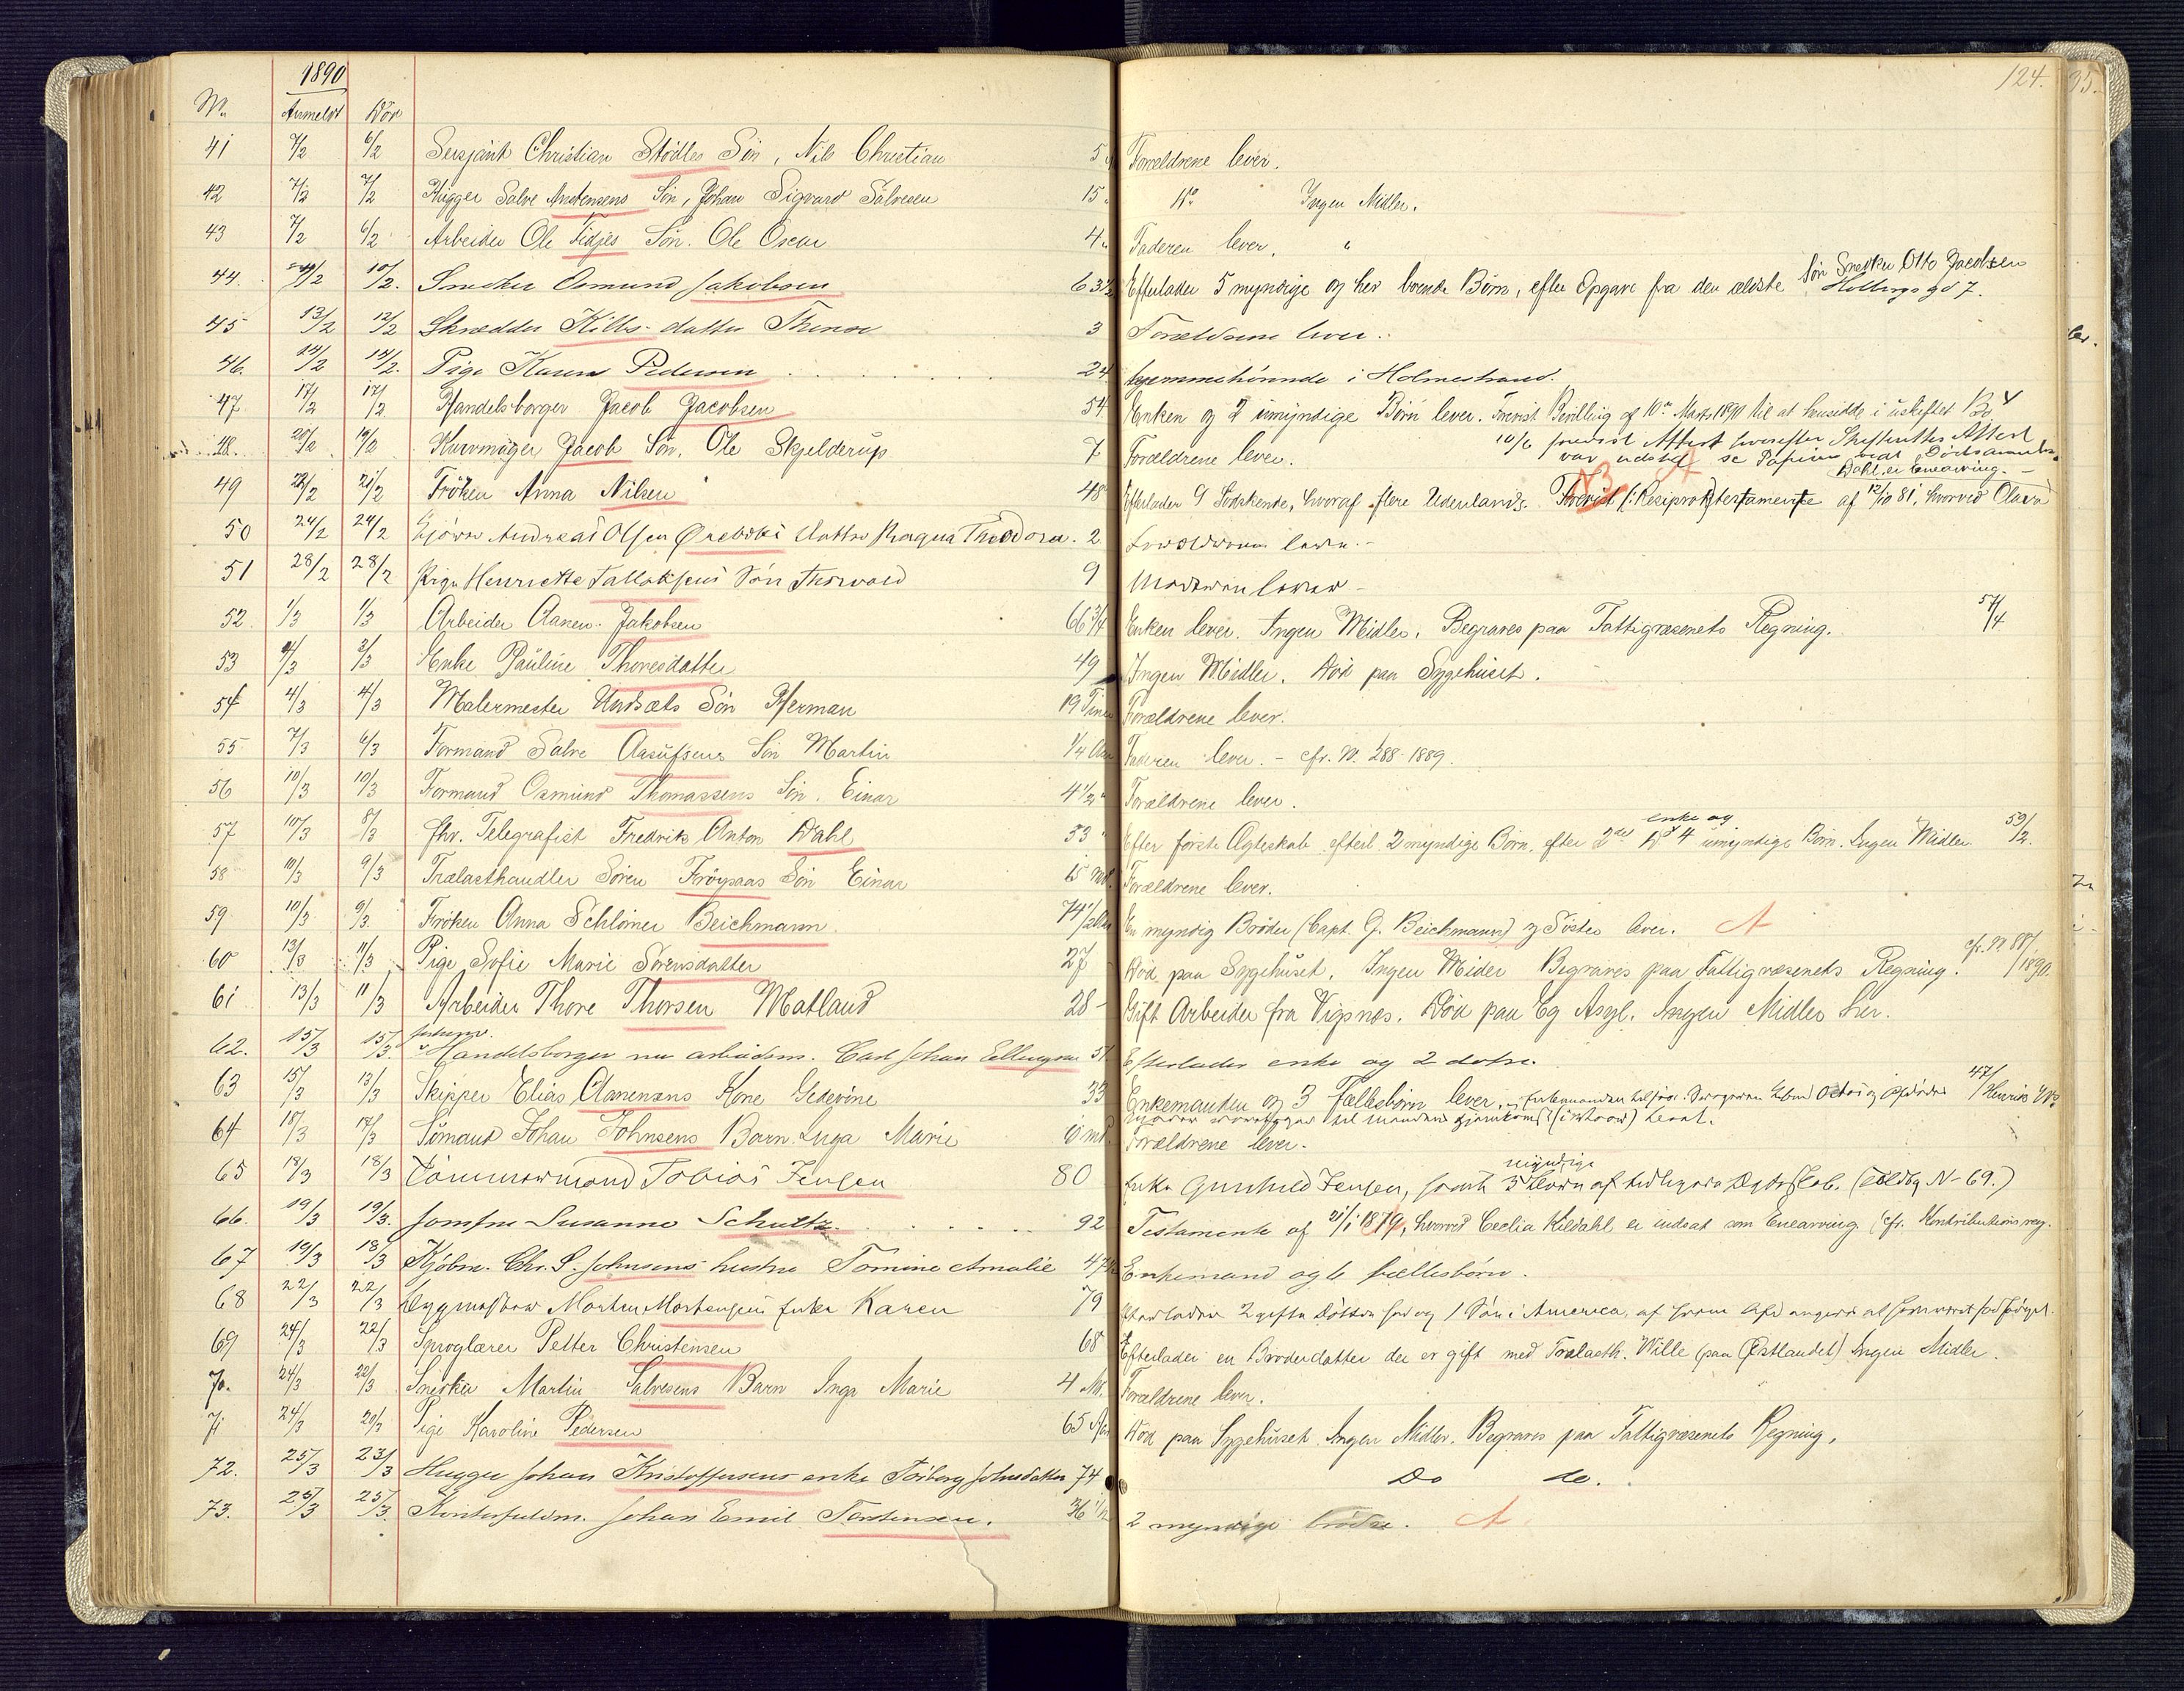 1890
124.
No. Anmeldt Död
41 7/2 6/2 Sersjant Christian Stödles Sön, Nils Christian 5 Forældrene lever.
42 7/2 7/2 Rigger Salve Andersens Sön, Johan Sigvard Salvesen 15 Do Ingen Midler.
43 7/2 6/2 Arbeider Ole Fidjes Sön. Ole Oscar 4 Faderen lever. "
44. 10/2. Snedker Osmund Jakobsen 63 1/2 Efterlader 5 myndige og her boende Börn, efter Opgave fra den ældste Sön Snedker Otto Jacobsen
Holbergs gd 7.
45 13/2 12/2 Skrædder Hilles datter Thinor 3 Forældrene lever.
46. 14/2 14/2. Pige Karen Pedersen 24 hjemmehörende i Holmestrand.
47 17/2 17/2 Handelsborger Jacob Jacobsen 54 Enken og 2 umyndige Börn lever. Forevist Bevilling af 10de Marts 1890 til at hensidde i uskiftet Bo
48. 20/2 19/2 Kurvmager Jacob Sön. Ole Skjelderup 7 Forældrene lever.
10/6 forevist Attest hvorefter Skifterettens Attest
var udstedt se Papirer ved Dödsanm
49 22/2 21/2 Fröken Anna Nilsen 48 Efterlader 9 Södskende, hvoraf flere Udenlands. Forevist (: Resiprokt) testamente af 12/10 81, hvorved Olava
Dahl er Enearving. -
50 24/2 24/2 Andreas Olsen datter Ragna Theodora. 2 Forældrene lever. -
51 28/2 28/2 Pige Henriette Tallaksens Sön Thorvald 9 Moderen lever -
52. 1/3 1/3 Arbeider Aanen Jakobsen 66 3/4 Enken lever. Ingen Midler. Begraves paa Fattigvæsenets Regning. 57/4
53 4/3 2/3 Enke Pauline Thoresdatter 49 Ingen Midler. Död paa Sygehuset.
54 4/3 4/3 Malermester Undsets Sön Herman 19 Timer Forældrene lever.
55 7/3 6/3 Formand Salve Aasufsens Sön Martin 1/4 Aar Faderen lever. - cfr. No. 288-1889.
56 10/3 10/3 Formand Osmund Thomassens Sön. Einar 4 1/2 Forældrene lever.
57 10/3 8/3 fhv. Telegrafist Fredrik Anton Dahl 53 Efter förste Ægteskab efterl. 2 myndige Börn, efter 2det Do enke og 4 umyndige Börn. Ingen Midler 59/2.
58 10/3 9/3 Trælasthandler Sören Fröysaas Sön Einar 15 Md. Forældrene lever.
59 10/3 9/3. Fröken Anna Schlömer Beichmann. 74 1/2 Aar En myndig Broder (Capt. G. Beichmann) og Söster lever. A
60 13/3 11/3 Pige Sofie Marie Sörensdatter 27 Död paa Sygehuset. Ingen Midler Begraves paa Fattigvæsenets Regning. cfr. No 88/1890.
61 13/3 11/3 Arbeider Thore Thorsen Matland 28 - Gift Arbeider fra Vigsnes. Död paa Eg Asyl. Ingen Midler her.
62. 15/3 15/3. forhenv. Handelsborger nu arbeidsm. Carl Johan Ellingsen 51 Efterlader enke og 2 dötre.
63 15/3 13/3 Skipper Elias Aanensens Kone Gedevine 33 Enkemanden og 3 Fællesbörn lever.
47/ Henrik
til mandens hjemkomst
64 18/3 17/3 Sömand Johan Johnsens Barn Inga Marie Forældrene lever.
65 18/3 18/3 Tömmermand Tobias Jensen 80 Enke Gunhild Jensen, samt 3 myndige Börn af tidligere Ægteskab. (N-69.)
66. 19/3 19/3. Jomfru Susanne Schultz. 92 Testamente af 21/1 1879, hvorved Cecilia Kildahl er indsat som Enearving. (cfr. Kontributionsreg.
67 19/3 18/3 Kjöbm. Chr. S. Johnsens hustru Tomine Amalie 47 Enkemand og 6 fællesbörn.
68 22/3 22/3 Morten Mortensens Enke Karen 79 Efterlader 2 gifte Döttre her og 1 Sön i America,
69 24/3 22/3 Sproglærer Petter Christensen 68 Efterlader en Broderdatter der er gift med Trælasth. Wille (paa Östlandet) Ingen Midler.
70. 24/3 22/3 Snedker Martin Salvesens Barn Inga Marie 4 Md. Forældrene lever.
71 24/3 20/3 Pige Karoline Pedersen 65 Aar Död paa Sygehuset. Ingen Midler. Begraves paa Fattigvæsenets Regning.
72. 25/3 23/3 Hugger Johan Kristoffersens enke Torborg Johnsdatter 74 Do do.
73. 25/3 25/3. Kontorfuldm. Johan Emil Torstensen. 36 1/12 2 myndige brödre. A